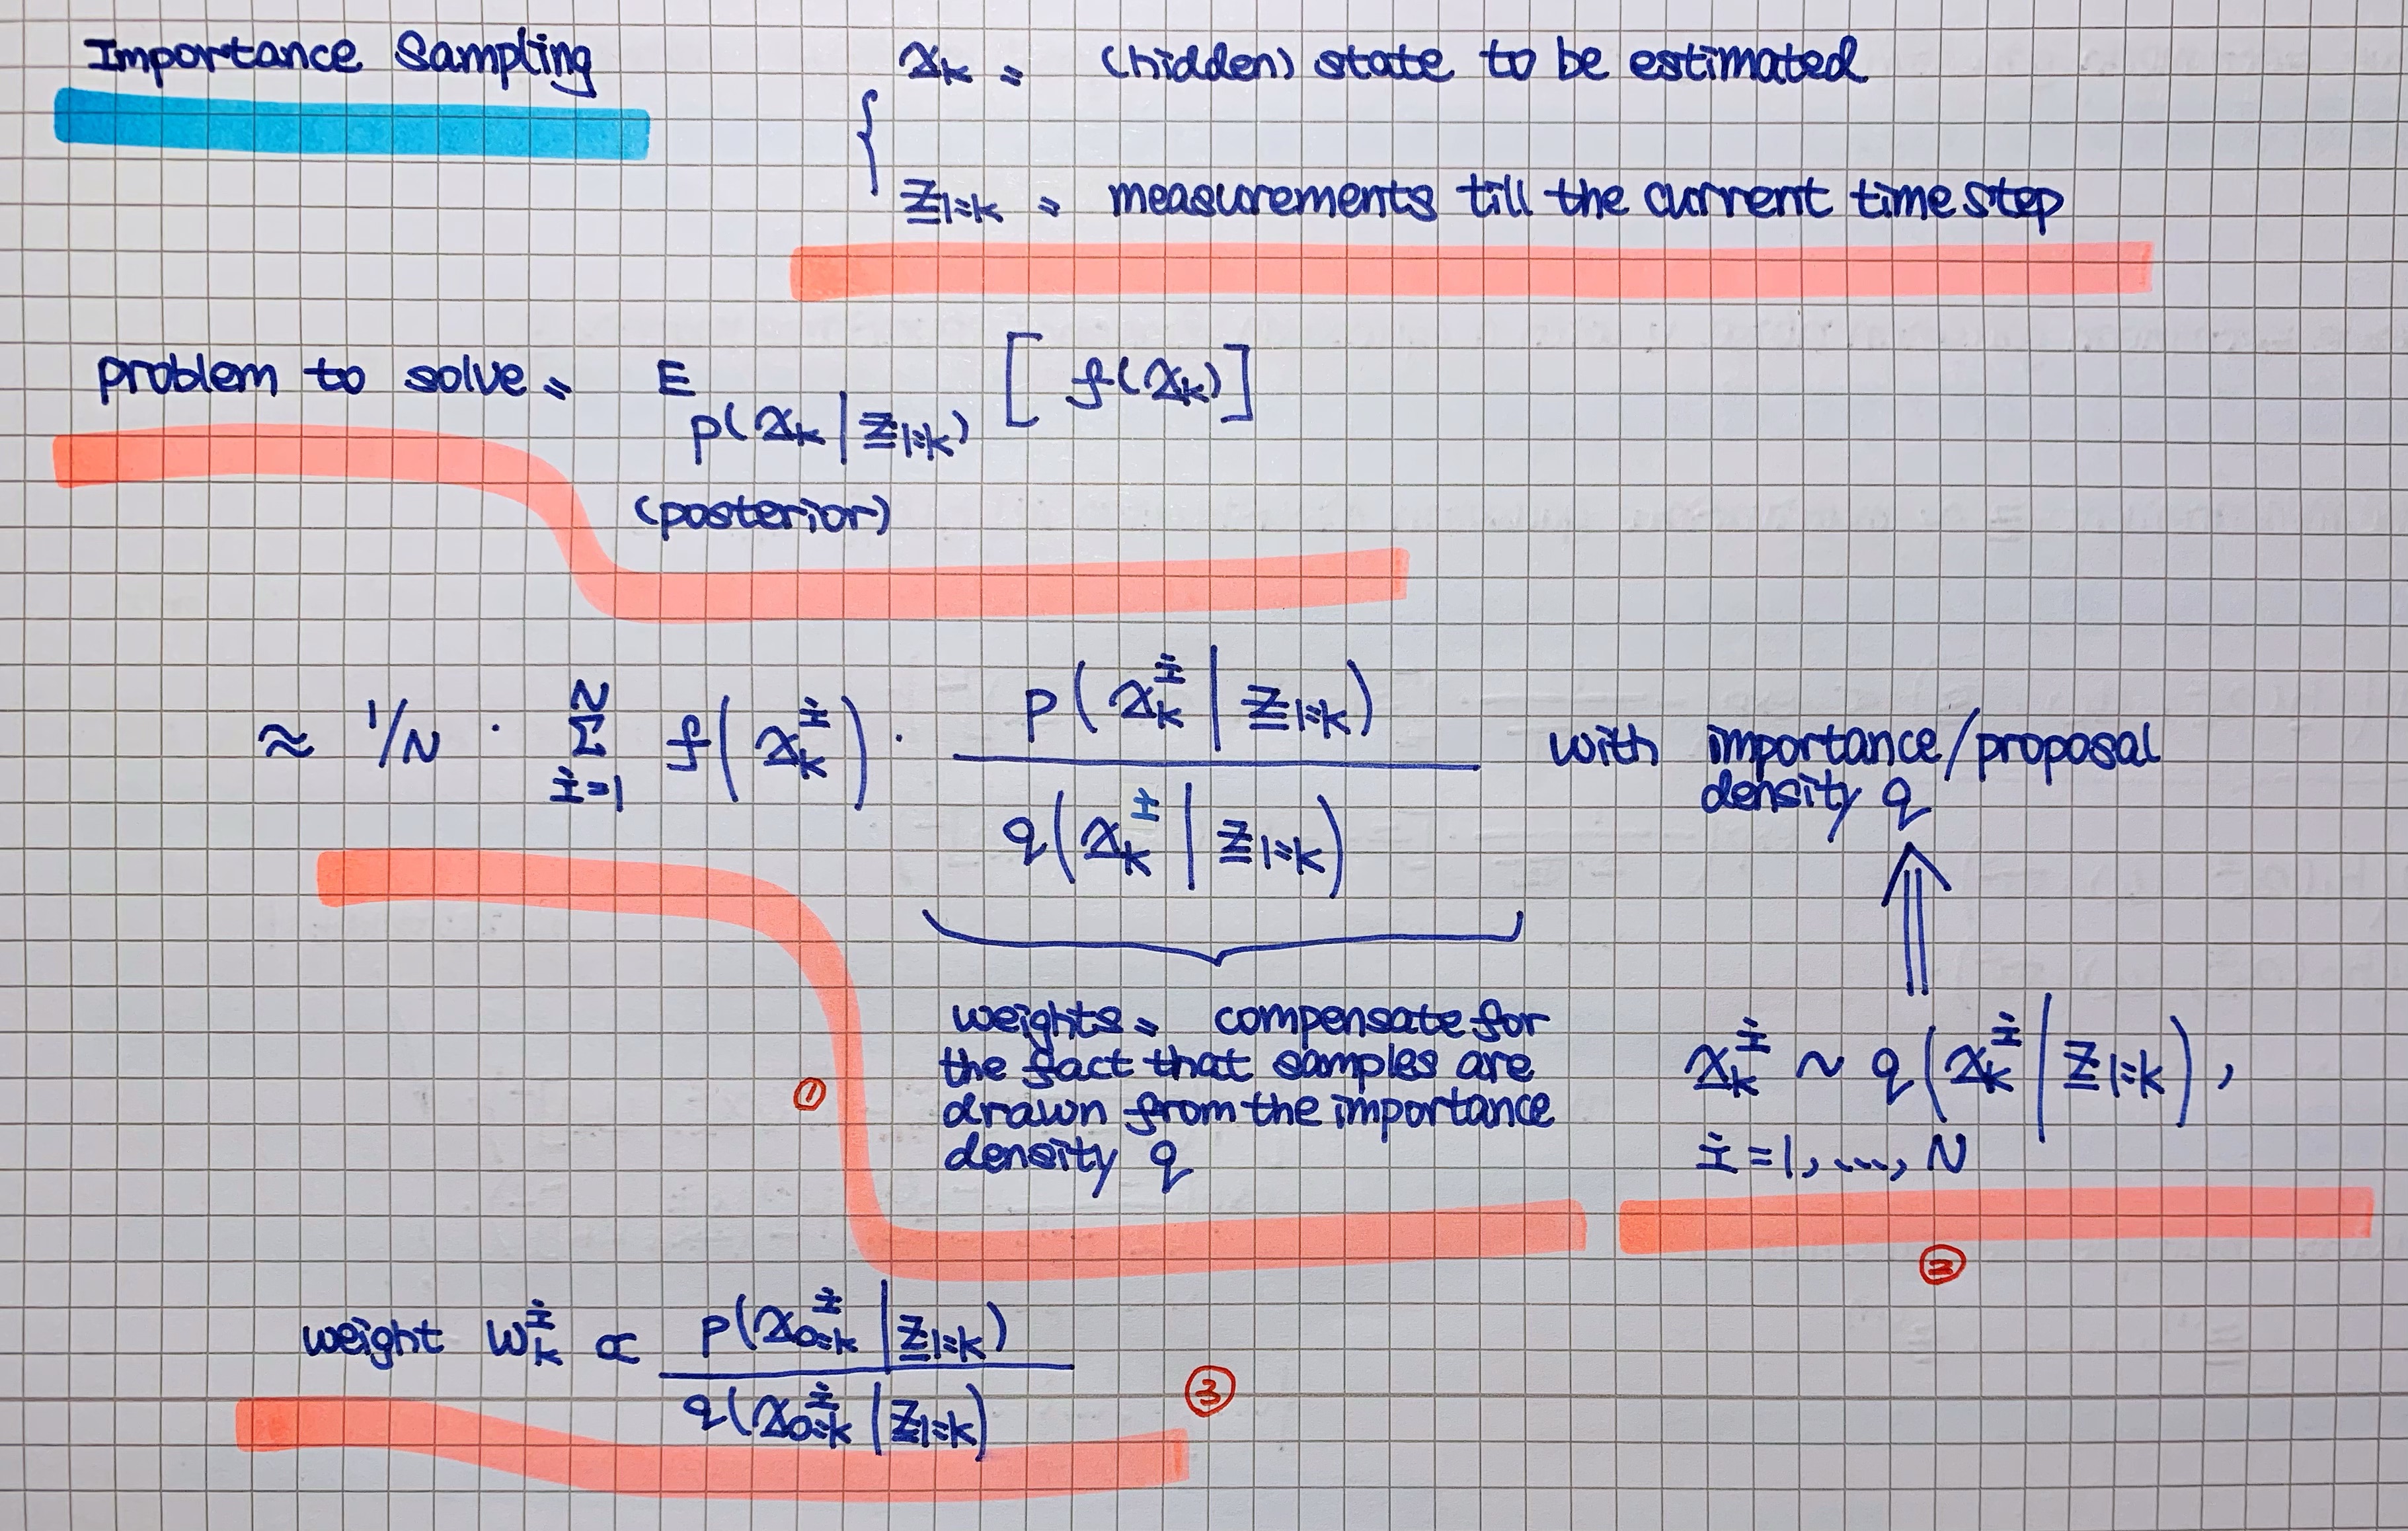 Importance Sampling
x_k : (hidden) state to be estimated
z_{1:k} : measurements till the current time step
problem to solve : E_{p(x_k | z_{1:k})} [ f(x_k) ]
(posterior)
≈ 1/N · Σ_{i=1}^{N} f(x_k^i) · p(x_k^i | z_{1:k}) / q(x_k^i | z_{1:k}) with importance/proposal
density q
weights : compensate for
the fact that samples are
drawn from the importance
density q
①
x_k^i ~ q(x_k^i | z_{1:k}),
i = 1, ..., N
②
weight w_k^i ∝ p(x_{0:k}^i | z_{1:k}) / q(x_{0:k}^i | z_{1:k})
③